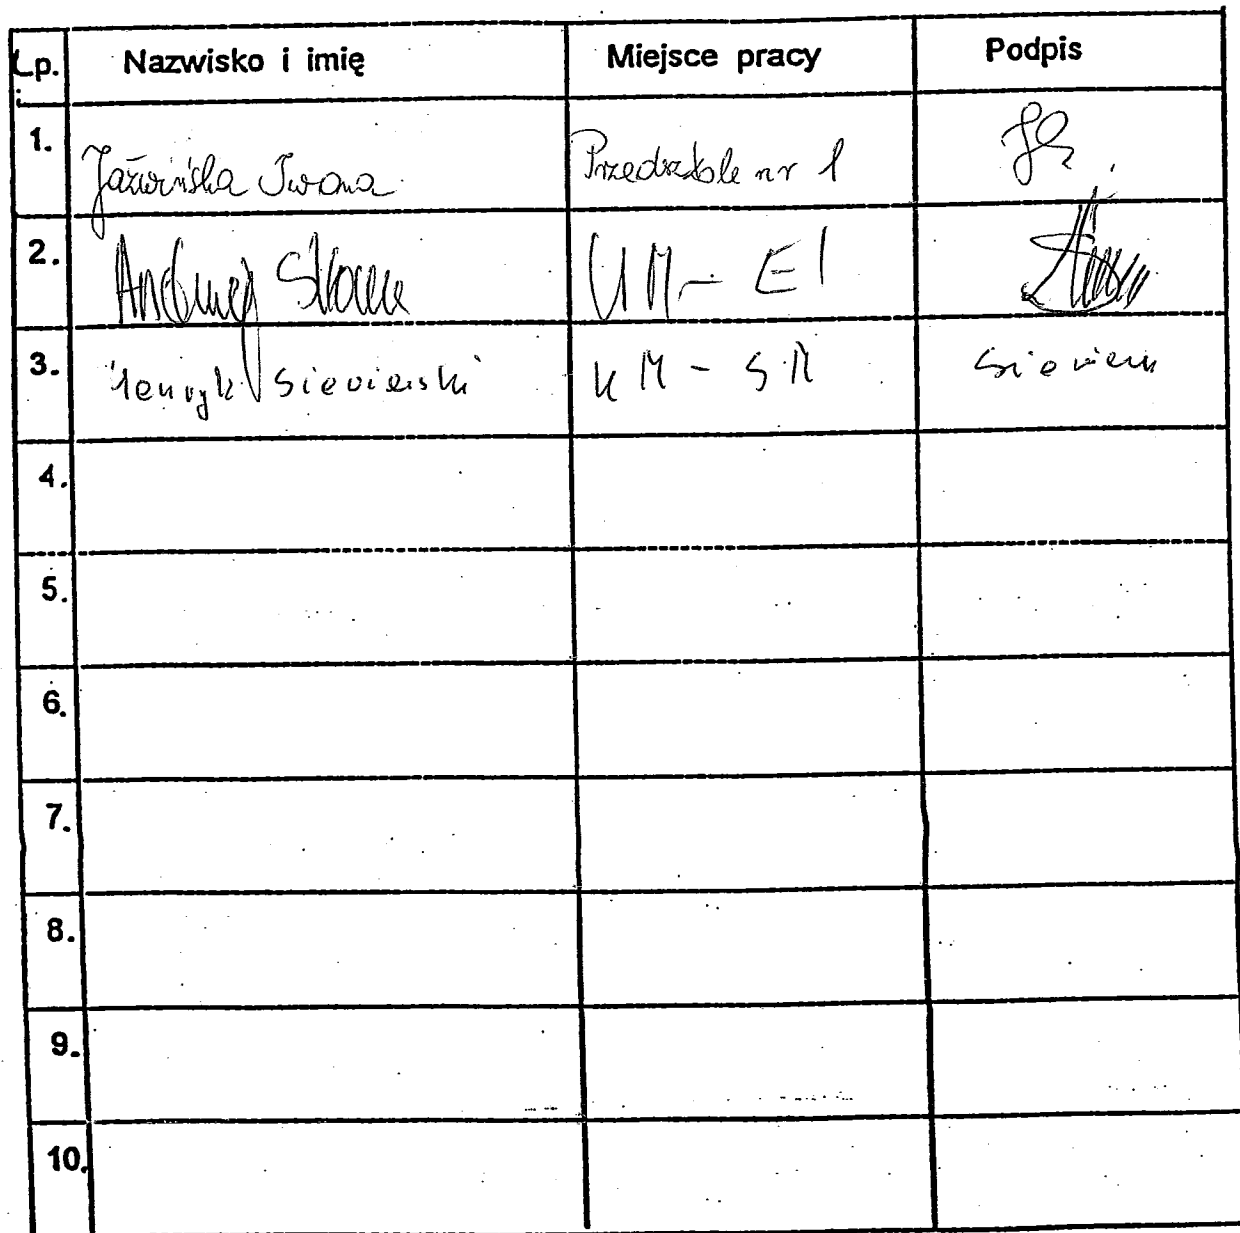 Lp. Nazwisko i imię Miejsce pracy Podpis
1. Jaźwińska Iwona Przedszkole nr 1
2. Andrzej UM - EI
3. Henryk Siewierski UM - SM
4.
5.
6.
7.
8.
9.
10.